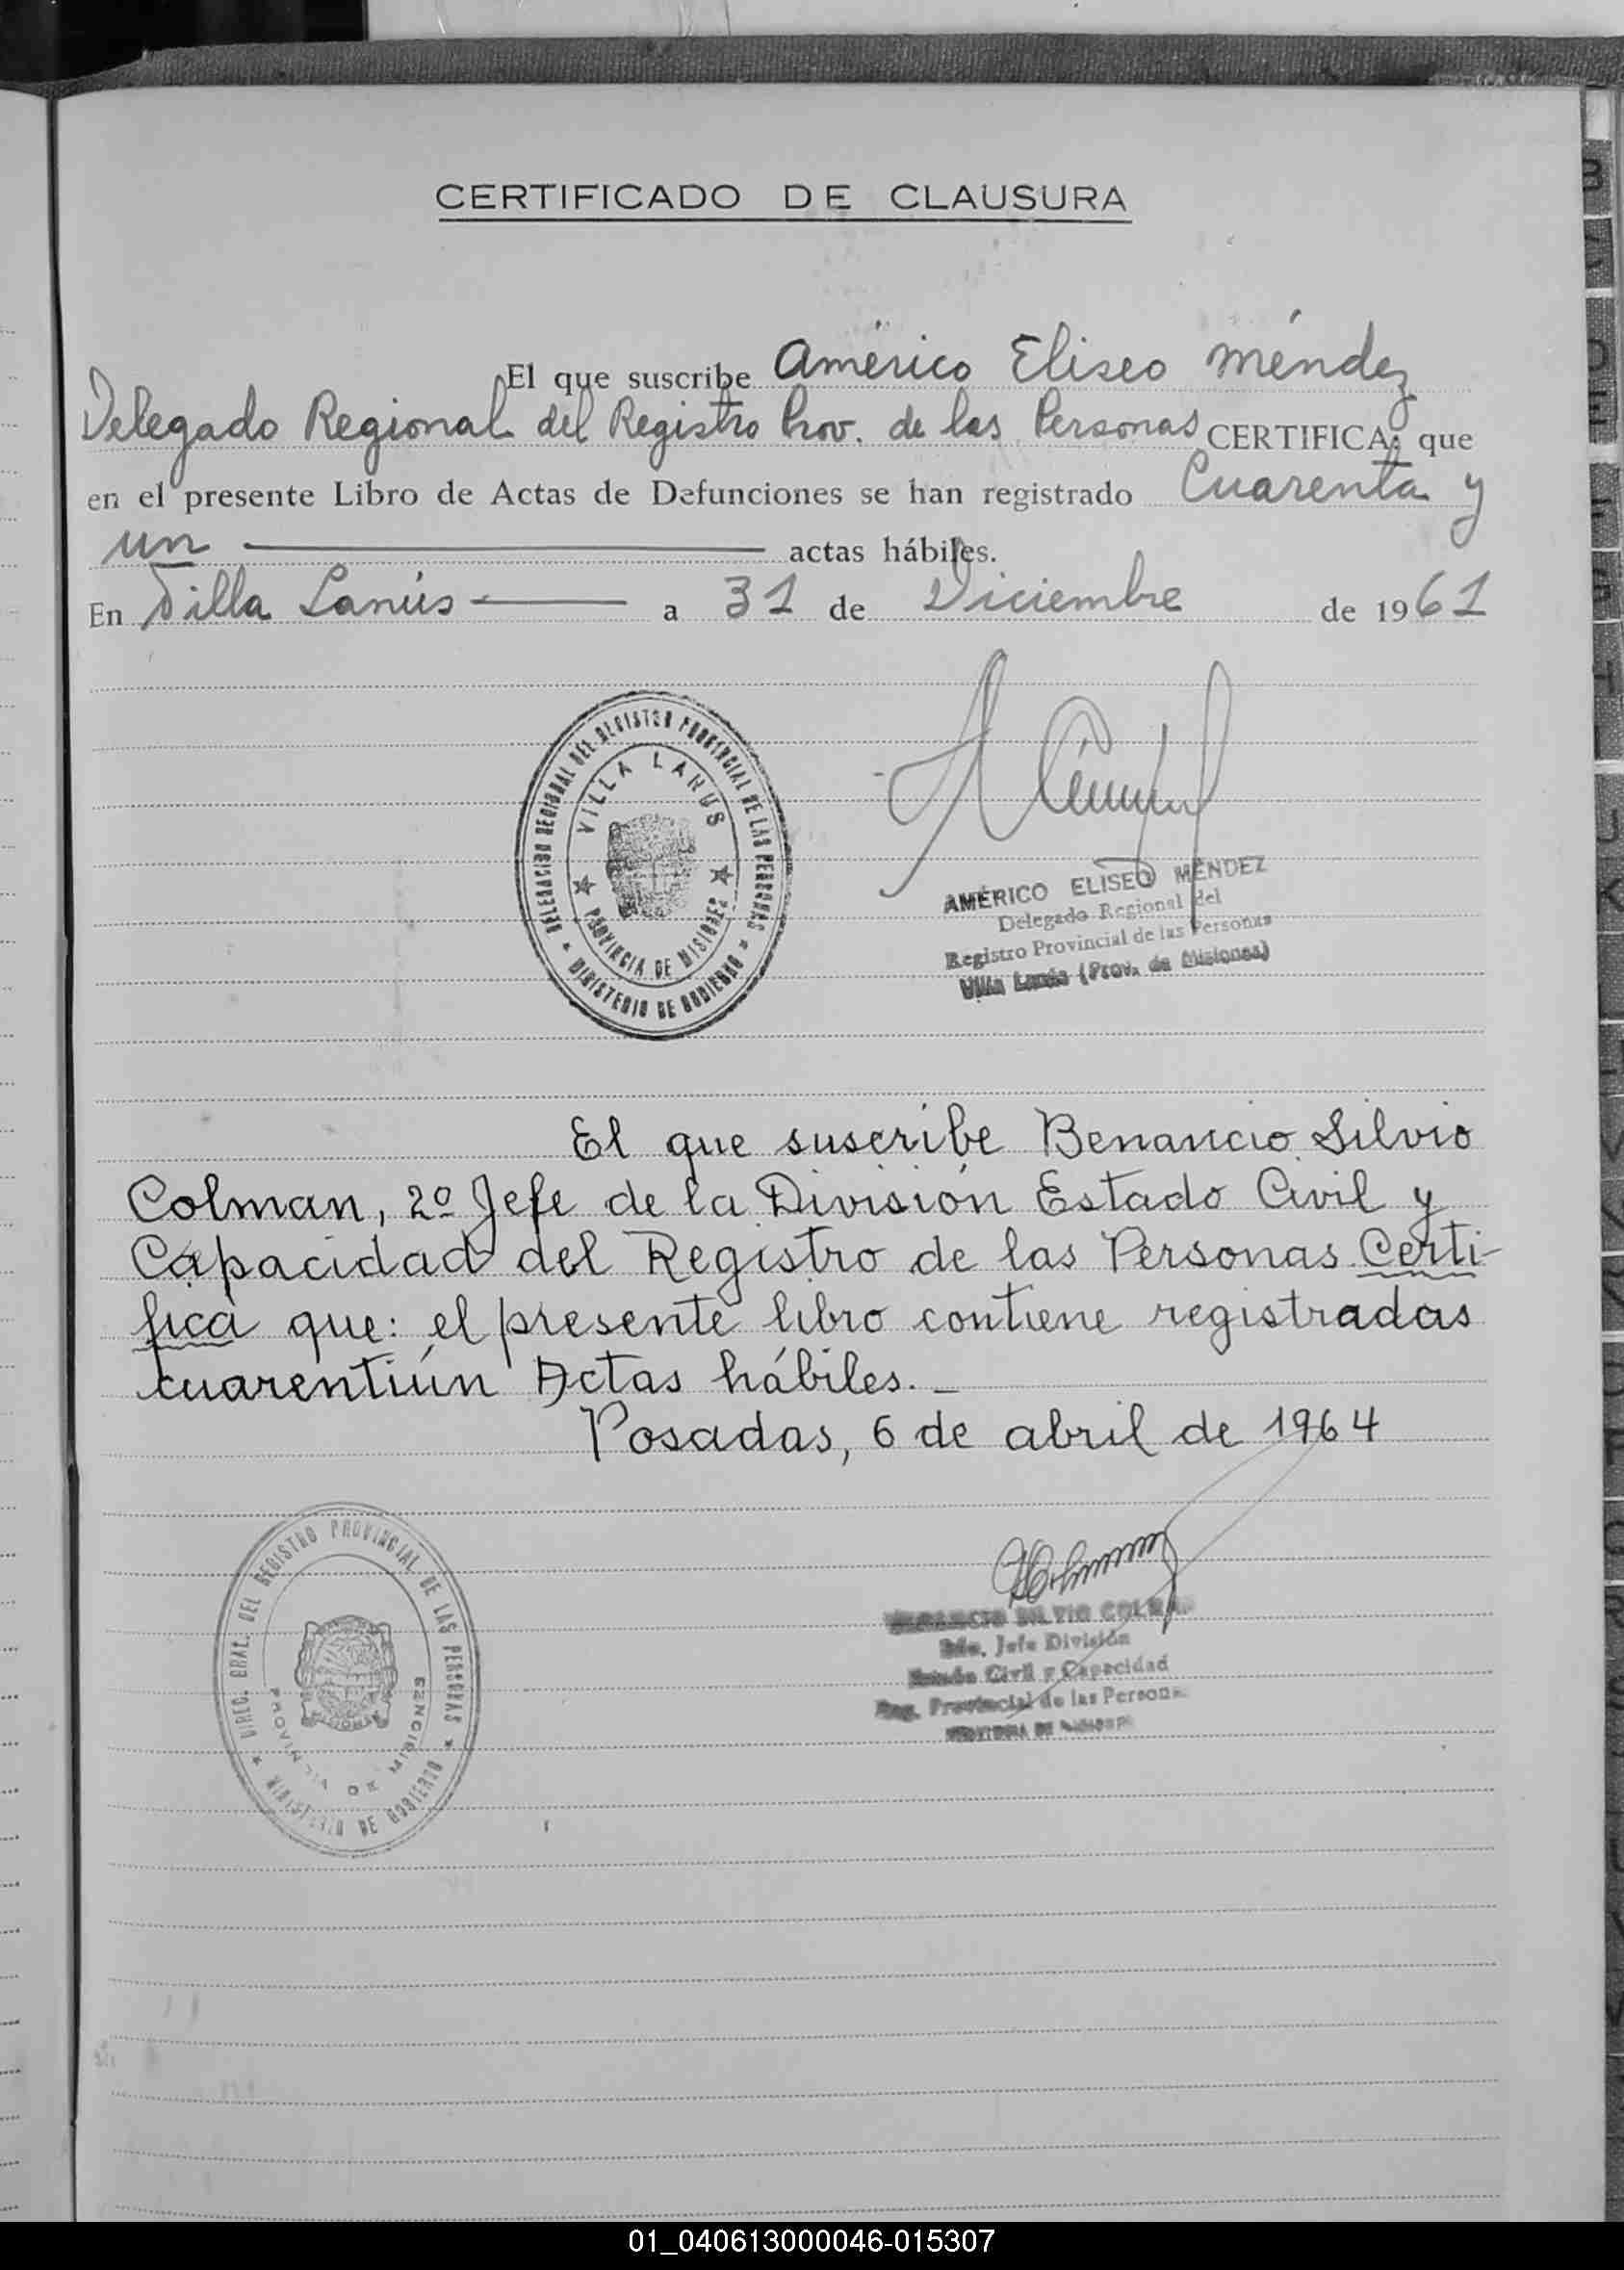 CERTIFICADO DE CLAUSURA
El que suscribe Américo Eliseo Méndez
Delegado Regional del Registro Prov. de las Personas CERTIFICA: que
en el presente Libro de Actas de Defunciones se han registrado Cuarenta y
un actas hábiles.
En Villa Lanús a 31 de Diciembre de 1961
DELEGACION REGIONAL DEL REGISTRO PROVINCIAL DE LAS PERSONAS
★ MINISTERIO DE GOBIERNO ★
VILLA LANUS
★ PROVINCIA DE MISIONES ★
AMÉRICO ELISEO MÉNDEZ
Delegado Regional del
Registro Provincial de las Personas
Villa Lanús (Prov. de Misiones)
El que suscribe Benancio Silvio
Colman, 2º Jefe de la División Estado Civil y
Capacidad del Registro de las Personas Certi-
fica que: el presente libro contiene registradas
cuarentiún Actas hábiles.-
Posadas, 6 de abril de 1964
DIREC. GRAL. DEL REGISTRO PROVINCIAL DE LAS PERSONAS
★ MINISTERIO DE GOBIERNO ★
PROVINCIA DE MISIONES
BENANCIO SILVIO COLMAN
2do. Jefe División
Estado Civil y Capacidad
Reg. Provincial de las Personas
PROVINCIA DE MISIONES
01_040613000046-015307